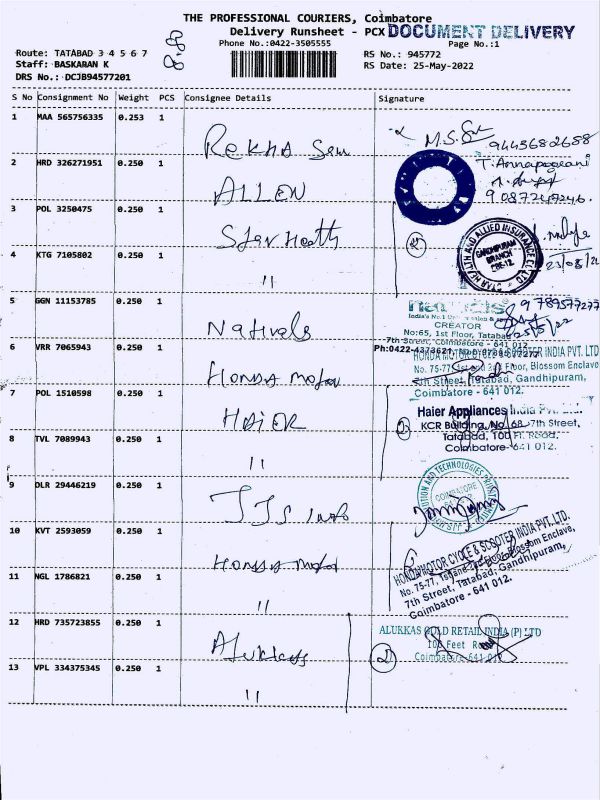 THE PROFESSIONAL COURIERS, Coimbatore
Delivery Runsheet - PCX DOCUMENT DELIVERY
Phone No.:0422-3505555 Page No.:1
Route: TATABAD 3 4 5 6 7 RS No.: 945772
Staff: BASKARAN K RS Date: 25-May-2022
DRS No.: DCJB94577201
S No Consignment No Weight PCS Consignee Details Signature
1 MAA 565756335 0.253 1 REKHA
M.S. 9443682688
2 HRD 326271951 0.250 1 ALLEN
T. Annapoorani
9087247246.
3 POL 3250475 0.250 1 Star Health
STAR HEALTH AND ALLIED INSURANCE CO LTD
GANDHIPURAM
BRANCH
CBE-12.
4 KTG 7105802 0.250 1 "
5 GGN 11153785 0.250 1 Naturals
9789577277
India's No.1
CREATOR
No:65, 1st Floor, Tatabad
7th Street, Coimbatore - 641 012
25/5/22
6 VRR 7065943 0.250 1 HONDA motor
HONDA MOTOR SCOOTER INDIA PVT. LTD
No. 75-77, 1st and 2nd Floor, Blossom Enclave
7th Street, Tatabad, Gandhipuram,
Coimbatore - 641 012.
7 POL 1510598 0.250 1 HAIER
Haier Appliances India Pvt. Ltd.
KCR Building, No. 68, 7th Street,
Tatabad, 100 Ft. Road,
Coimbatore-641 012.
8 TVL 7089943 0.250 1 "
9 DLR 29446219 0.250 1 JJS Info
COIMBATORE
10 KVT 2593059 0.250 1 Honda motor
HONDA MOTOR CYCLE & SCOOTER INDIA PVT. LTD.
No. 75-77, 1st and 2nd Floor, Blossom Enclave,
7th Street, Tatabad, Gandhipuram,
Coimbatore - 641 012.
11 NGL 1786821 0.250 1 "
12 HRD 735723855 0.250 1 Alukkas
ALUKKAS GOLD RETAIL INDIA (P) LTD
100 Feet Road
Coimbatore-641 012
13 VPL 334375345 0.250 1 "